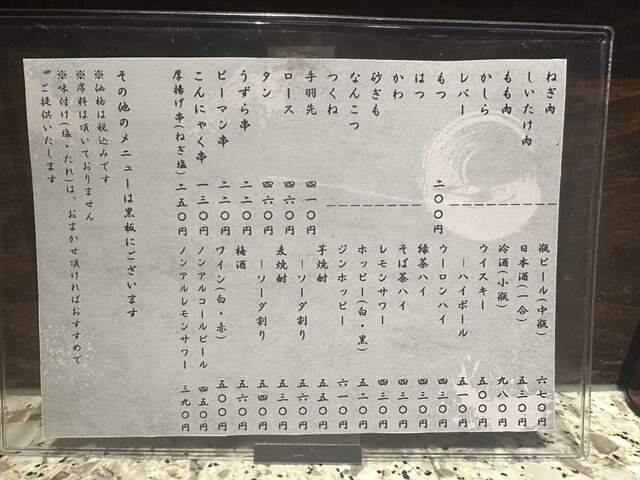 ねぎ肉
しいたけ肉
もも肉
かしら
レバー
もつ 二〇〇円
はつ
かわ
砂ぎも
なんこつ
つくね
手羽先 四一〇円
ロース 四六〇円
タン 四六〇円
うずら串 二二〇円
ピーマン串 二二〇円
こんにゃく串 一三〇円
厚揚げ串(ねぎ塩) 二五〇円
瓶ビール(中瓶) 六七〇円
日本酒(一合) 五三〇円
冷酒(小瓶) 九八〇円
ウイスキー 五〇〇円
―ハイボール 五一〇円
ウーロンハイ 四三〇円
緑茶ハイ 四三〇円
そば茶ハイ 四三〇円
レモンサワー 四三〇円
ホッピー(白・黒) 五二〇円
ジンホッピー 六一〇円
芋焼酎 五五〇円
―ソーダ割り 五六〇円
麦焼酎 五三〇円
―ソーダ割り 五四〇円
梅酒 五六〇円
ワイン(白・赤) 五〇〇円
ノンアルコールビール 四五〇円
ノンアルレモンサワー 三九〇円
その他のメニューは黒板にございます
※価格は税込みです
※席料は頂いておりません
※味付け(塩・たれ)は、おまかせ頂ければおすすめで
ご提供いたします